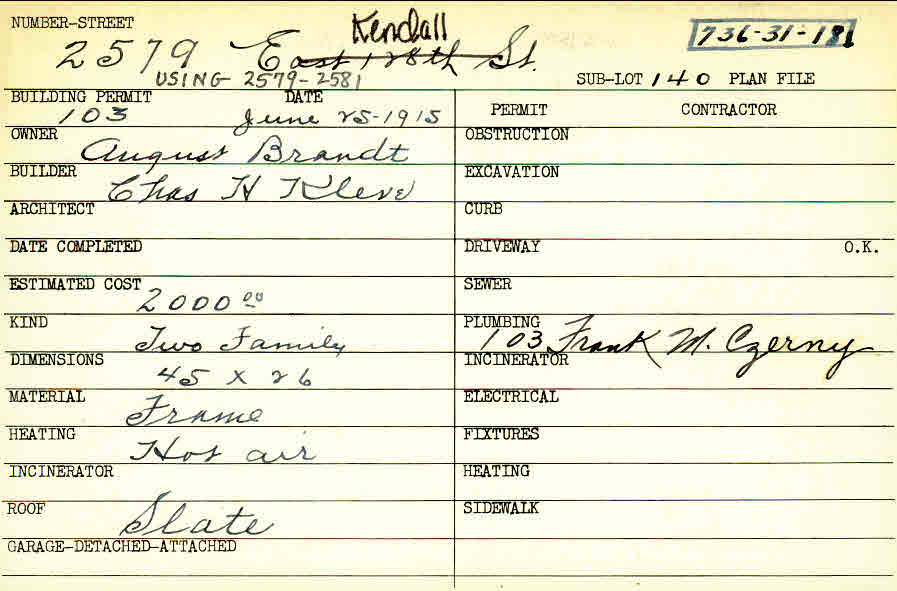 NUMBER-STREET Kendall 736-31-181
2579 East 128th St.
USING 2579-2581 SUB-LOT 140 PLAN FILE
BUILDING PERMIT DATE PERMIT CONTRACTOR
103 June 25-1915
OWNER August Brandt OBSTRUCTION
BUILDER Chas H Kleve EXCAVATION
ARCHITECT CURB
DATE COMPLETED DRIVEWAY O.K.
ESTIMATED COST 2000 00 SEWER
KIND Two Family PLUMBING 103 Frank M. Czerny
DIMENSIONS 45 x 26 INCINERATOR
MATERIAL Frame ELECTRICAL
HEATING Hot air FIXTURES
INCINERATOR HEATING
ROOF Slate SIDEWALK
GARAGE-DETACHED-ATTACHED